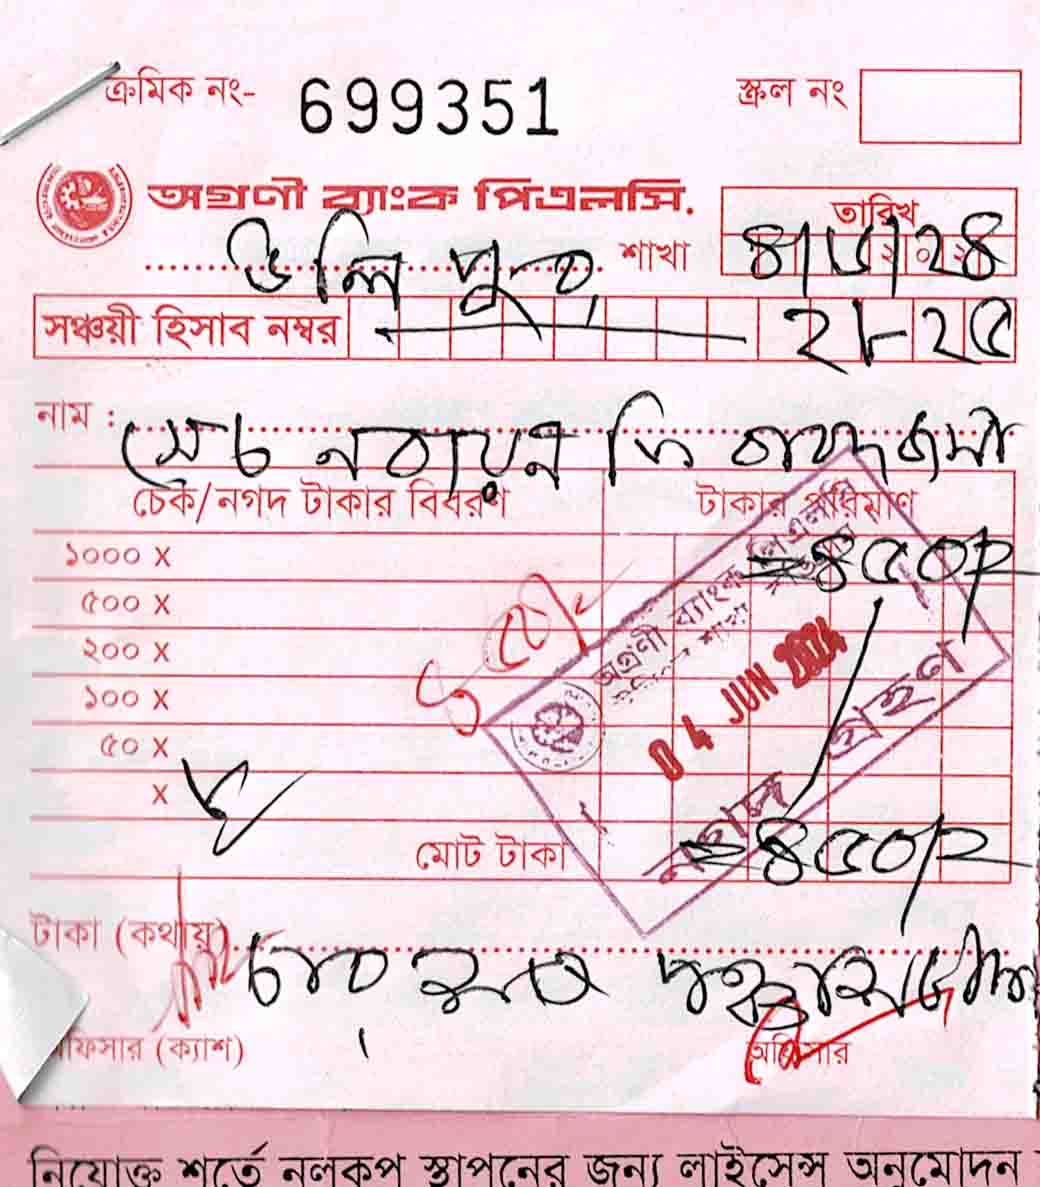 ক্রমিক নং- 699351 স্ক্রল নং
অগ্রণী ব্যাংক পিএলসি. তারিখ
উলিপুর শাখা ৪/৬/২৪
সঞ্চয়ী হিসাব নম্বর ২৮-২৫
নাম : সেচ নবায়ন ফি বাবদ জমা
চেক/নগদ টাকার বিবরণ টাকার পরিমাণ
১০০০ X =৪৫০/=
৫০০ X
২০০ X
১০০ X
৫০ X
X
৪৫০/-
অগ্রণী ব্যাংক পিএলসি
শাখা
04 JUN 2024
নগদ গ্রহণ
মোট টাকা =৪৫০/=
টাকা (কথায়) চার শত পঞ্চাশ টাকা
অফিসার (ক্যাশ) অফিসার
নিয়োক্ত শর্তে নলকূপ স্থাপনের জন্য লাইসেন্স অনুমোদন